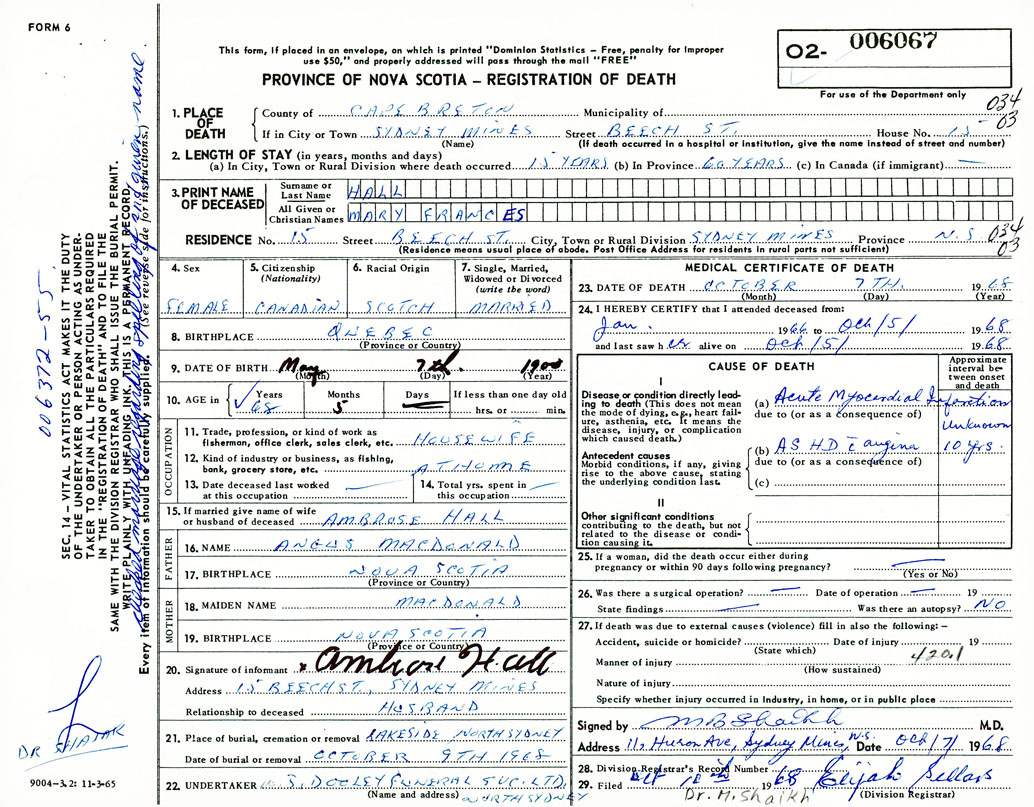 FORM 6
This form, if placed in an envelope, on which is printed "Dominion Statistics – Free, penalty for improper
use $50," and properly addressed will pass through the mail "FREE"
PROVINCE OF NOVA SCOTIA – REGISTRATION OF DEATH
O2- 006067
For use of the Department only
034
03
1. PLACE OF DEATH
County of CAPE BRETON Municipality of
If in City or Town SYDNEY MINES Street BEECH ST. House No. 15
(Name) (If death occurred in a hospital or institution, give the name instead of street and number)
2. LENGTH OF STAY (in years, months and days)
(a) In City, Town or Rural Division where death occurred 15 YEARS (b) In Province 60 YEARS (c) In Canada (if immigrant) —
3. PRINT NAME OF DECEASED
Surname or Last Name HALL
All Given or Christian Names MARY FRANCES
RESIDENCE No. 15 Street BEECH ST. City, Town or Rural Division SYDNEY MINES Province N.S.
(Residence means usual place of abode. Post Office Address for residents in rural parts not sufficient)
034
03
4. Sex
FEMALE
5. Citizenship (Nationality)
CANADIAN
6. Racial Origin
SCOTCH
7. Single, Married, Widowed or Divorced (write the word)
MARRIED
8. BIRTHPLACE QUEBEC
(Province or Country)
9. DATE OF BIRTH May 7th. 1900
(Month) (Day) (Year)
10. AGE in ✓ Years 68 Months 5 Days — If less than one day old
hrs. or min.
OCCUPATION
11. Trade, profession, or kind of work as fisherman, office clerk, sales clerk, etc. HOUSEWIFE
12. Kind of industry or business, as fishing, bank, grocery store, etc. AT HOME
13. Date deceased last worked at this occupation —
14. Total yrs. spent in this occupation —
15. If married give name of wife or husband of deceased AMBROSE HALL
FATHER
16. NAME ANGUS MACDONALD
17. BIRTHPLACE NOVA SCOTIA
(Province or Country)
MOTHER
18. MAIDEN NAME MACDONALD
19. BIRTHPLACE NOVA SCOTIA
(Province or Country)
20. Signature of informant x Ambrose Hall
Address 15 BEECH ST., SYDNEY MINES
Relationship to deceased HUSBAND
21. Place of burial, cremation or removal LAKESIDE NORTH SYDNEY
Date of burial or removal OCTOBER 9TH 1968
22. UNDERTAKER S. DOOLEY FUNERAL SVC. LTD,
(Name and address) NORTH SYDNEY
MEDICAL CERTIFICATE OF DEATH
23. DATE OF DEATH OCTOBER 7TH. 1968
(Month) (Day) (Year)
24. I HEREBY CERTIFY that I attended deceased from:
Jan. 1966 to Oct/5/ 1968
and last saw her alive on Oct/5/ 1968.
CAUSE OF DEATH
Approximate interval between onset and death
I
Disease or condition directly leading to death (This does not mean the mode of dying, e.g., heart failure, asthenia, etc. It means the disease, injury, or complication which caused death.)
(a) Acute Myocardial Infarction
due to (or as a consequence of)
Unknown
Antecedent causes
Morbid conditions, if any, giving rise to the above cause, stating the underlying condition last.
(b) ASHD c̄ angina 10 yrs.
due to (or as a consequence of)
(c)
II
Other significant conditions
contributing to the death, but not related to the disease or condition causing it.
25. If a woman, did the death occur either during pregnancy or within 90 days following pregnancy? —
(Yes or No)
26. Was there a surgical operation? — Date of operation — 19
State findings — Was there an autopsy? NO
27. If death was due to external causes (violence) fill in also the following: –
Accident, suicide or homicide? Date of injury 19
(State which)
420.1
Manner of injury
(How sustained)
Nature of injury
Specify whether injury occurred in industry, in home, or in public place
Signed by M B Shaikh M.D.
Address 112 Huron Ave, Sydney Mines, N.S. Date Oct/7/ 1968.
28. Division Registrar's Record Number
29. Filed Oct 10th 1968 Elijah Sellars
(Division Registrar)
Dr. M. Shaikh
SEC. 14 – VITAL STATISTICS ACT MAKES IT THE DUTY
OF THE UNDERTAKER OR PERSON ACTING AS UNDER-
TAKER TO OBTAIN ALL THE PARTICULARS REQUIRED
IN THE "REGISTRATION OF DEATH" AND TO FILE THE
SAME WITH THE DIVISION REGISTRAR WHO SHALL ISSUE THE BURIAL PERMIT.
WRITE PLAINLY WITH UNFADING INK. THIS IS A PERMANENT RECORD.
Every item of information should be carefully supplied. (See reverse side for instructions.)
spelling of 2nd given name.
006372-55
DR SHAIAK
9004–3.2: 11-3-65